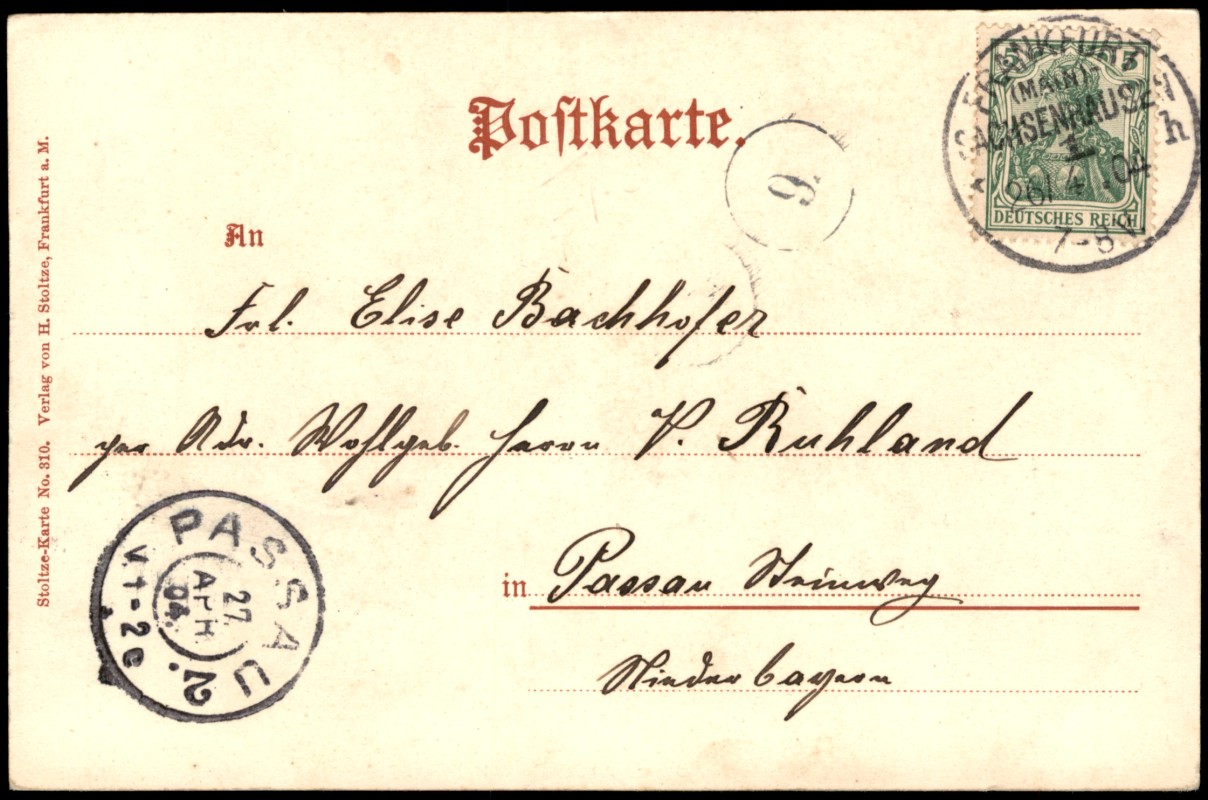 Postkarte.
5 5
DEUTSCHES REICH
FRANKFURT
(MAIN)
SACHSENHAUSEN
1
h
26/4.04
7-8V.
9
An
Frl. Elise Bachhofer
per Adr. Wohlgeb. Herrn V. Ruhland
in Passau Steinweg
Niederbayern
PASSAU 2.
27
APR
04.
V.1-2
Stoltze-Karte No. 310. Verlag von H. Stoltze, Frankfurt a. M.